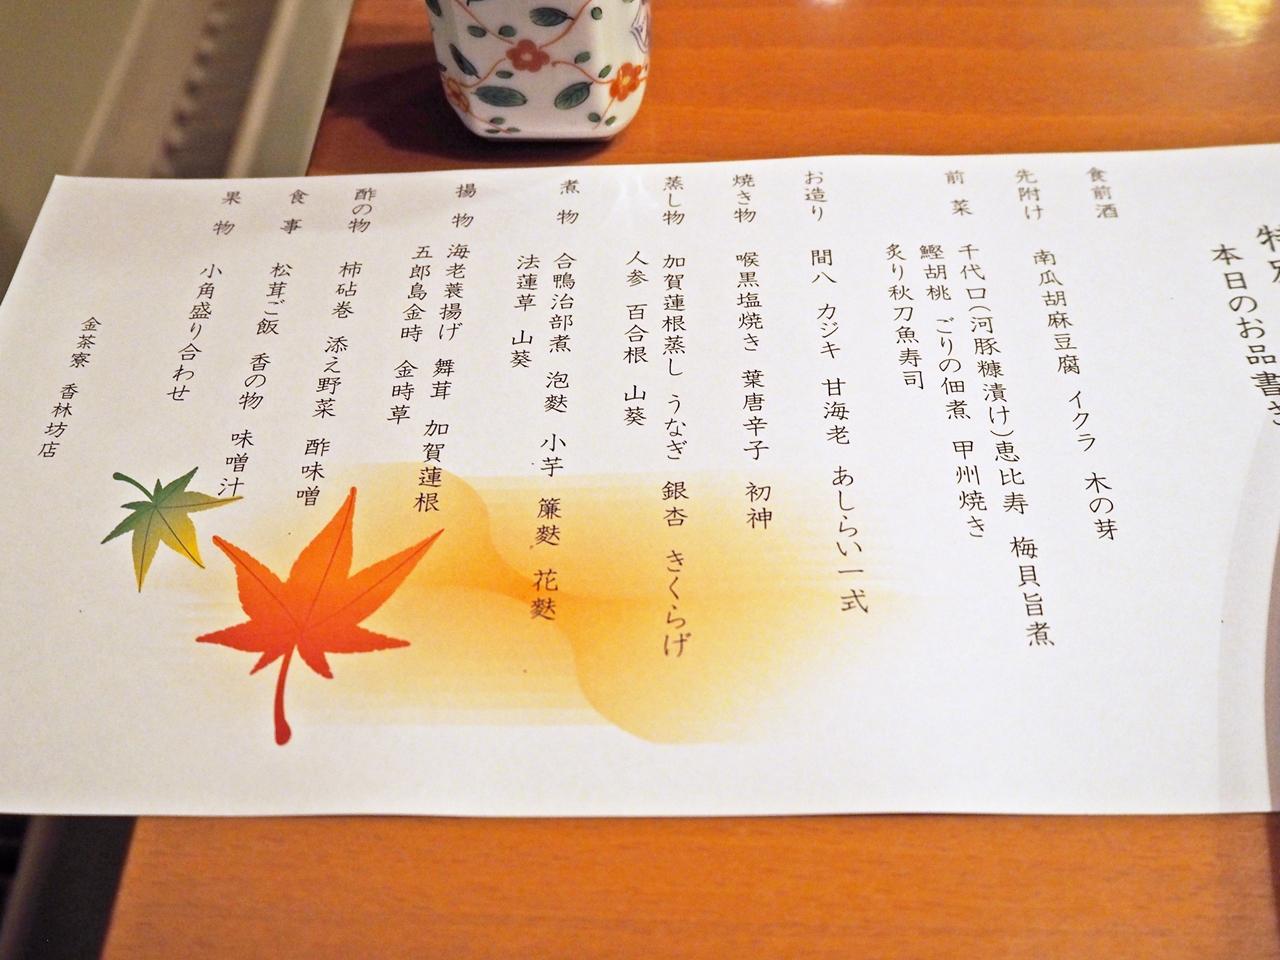 本日のお品書き
食前酒
先附け 南瓜胡麻豆腐 イクラ 木の芽
前菜 千代口(河豚糠漬け)恵比寿 梅貝旨煮
鰹胡桃 ごりの佃煮 甲州焼き
炙り秋刀魚寿司
お造り 間八 カジキ 甘海老 あしらい一式
焼き物 喉黒塩焼き 葉唐辛子 初神
蒸し物 加賀蓮根蒸し うなぎ 銀杏 きくらげ
人参 百合根 山葵
煮物 合鴨治部煮 泡麩 小芋 簾麩 花麩
法蓮草 山葵
揚物 海老蓑揚げ 舞茸 加賀蓮根
五郎島金時 金時草
酢の物 柿砧巻 添え野菜 酢味噌
食事 松茸ご飯 香の物 味噌汁
果物 小角盛り合わせ
金茶寮 香林坊店